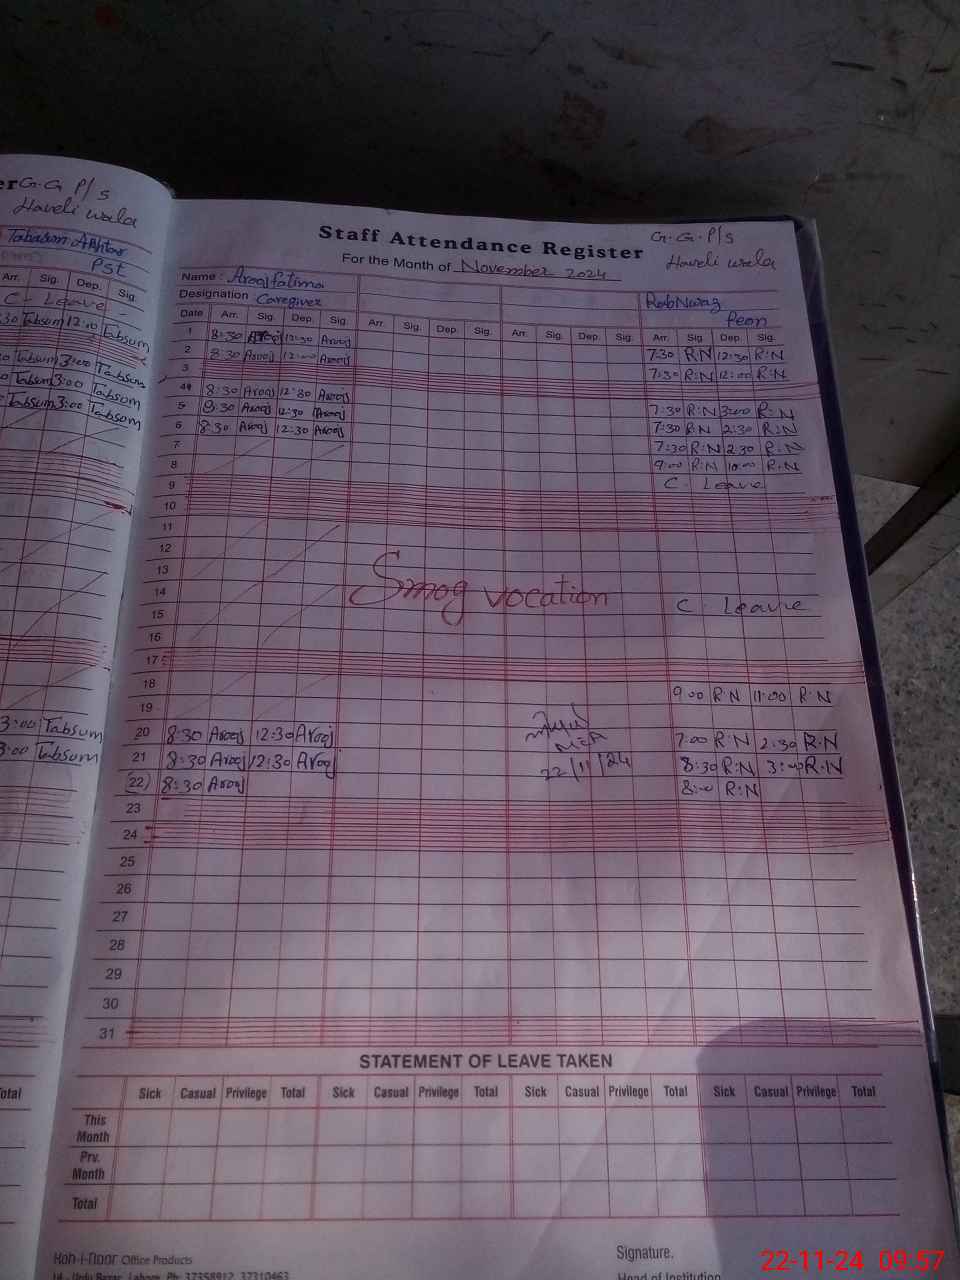 er G.G P/S
Haveli wala
Tabasum Akhtar
PST
Arr. Sig. Dep. Sig.
C - Leave
:30 Tabsum 12:10 Tabsum
Tabsum 3:00 Tabsum
Tabsum 3:00 Tabsum
Tabsum 3:00 Tabsum
3:00 Tabsum
3:00 Tabsum
otal
Staff Attendance Register G.G.P/S
For the Month of November 2024 Haveli wala
Name: Arooj fatima RabNwaz
Designation Caregiver Peon
Date Arr. Sig. Dep. Sig. Arr. Sig. Dep. Sig. Arr. Sig. Dep. Sig. Arr. Sig. Dep. Sig.
1 8:30 Arooj 12:30 Arooj 7:30 R.N 12:30 R.N
2 8:30 Arooj 12:00 Arooj 7:30 R:N 12:00 R.N
3
4 8:30 Arooj 12:30 Arooj 7:30 R:N 3:00 R:N
5 8:30 Arooj 12:30 Arooj 7:30 R.N 2:30 R:N
6 8:30 Arooj 12:30 Arooj 7:30 R:N 2:30 R:N
7 9:00 R:N 10:00 R:N
8 C. Leave
9
10
11
12
13
14 Smog vocation
15 C. Leave
16
17
18
19 9:00 R.N 11:00 R.N
20 8:30 Arooj 12:30 Arooj 7:00 R:N 2:30 R.N
21 8:30 Arooj 12:30 Arooj 22/11/24 8:30 R:N 3:00 R.N
22 8:30 Arooj 8:00 R:N
23
24
25
26
27
28
29
30
31
STATEMENT OF LEAVE TAKEN
Sick Casual Privilege Total Sick Casual Privilege Total Sick Casual Privilege Total Sick Casual Privilege Total
This Month
Prv. Month
Total
Koh-i-noor Office Products
14 - Urdu Bazar, Lahore. Ph: 37358912, 37310463
Signature.
Head of Institution
22-11-24 09:57